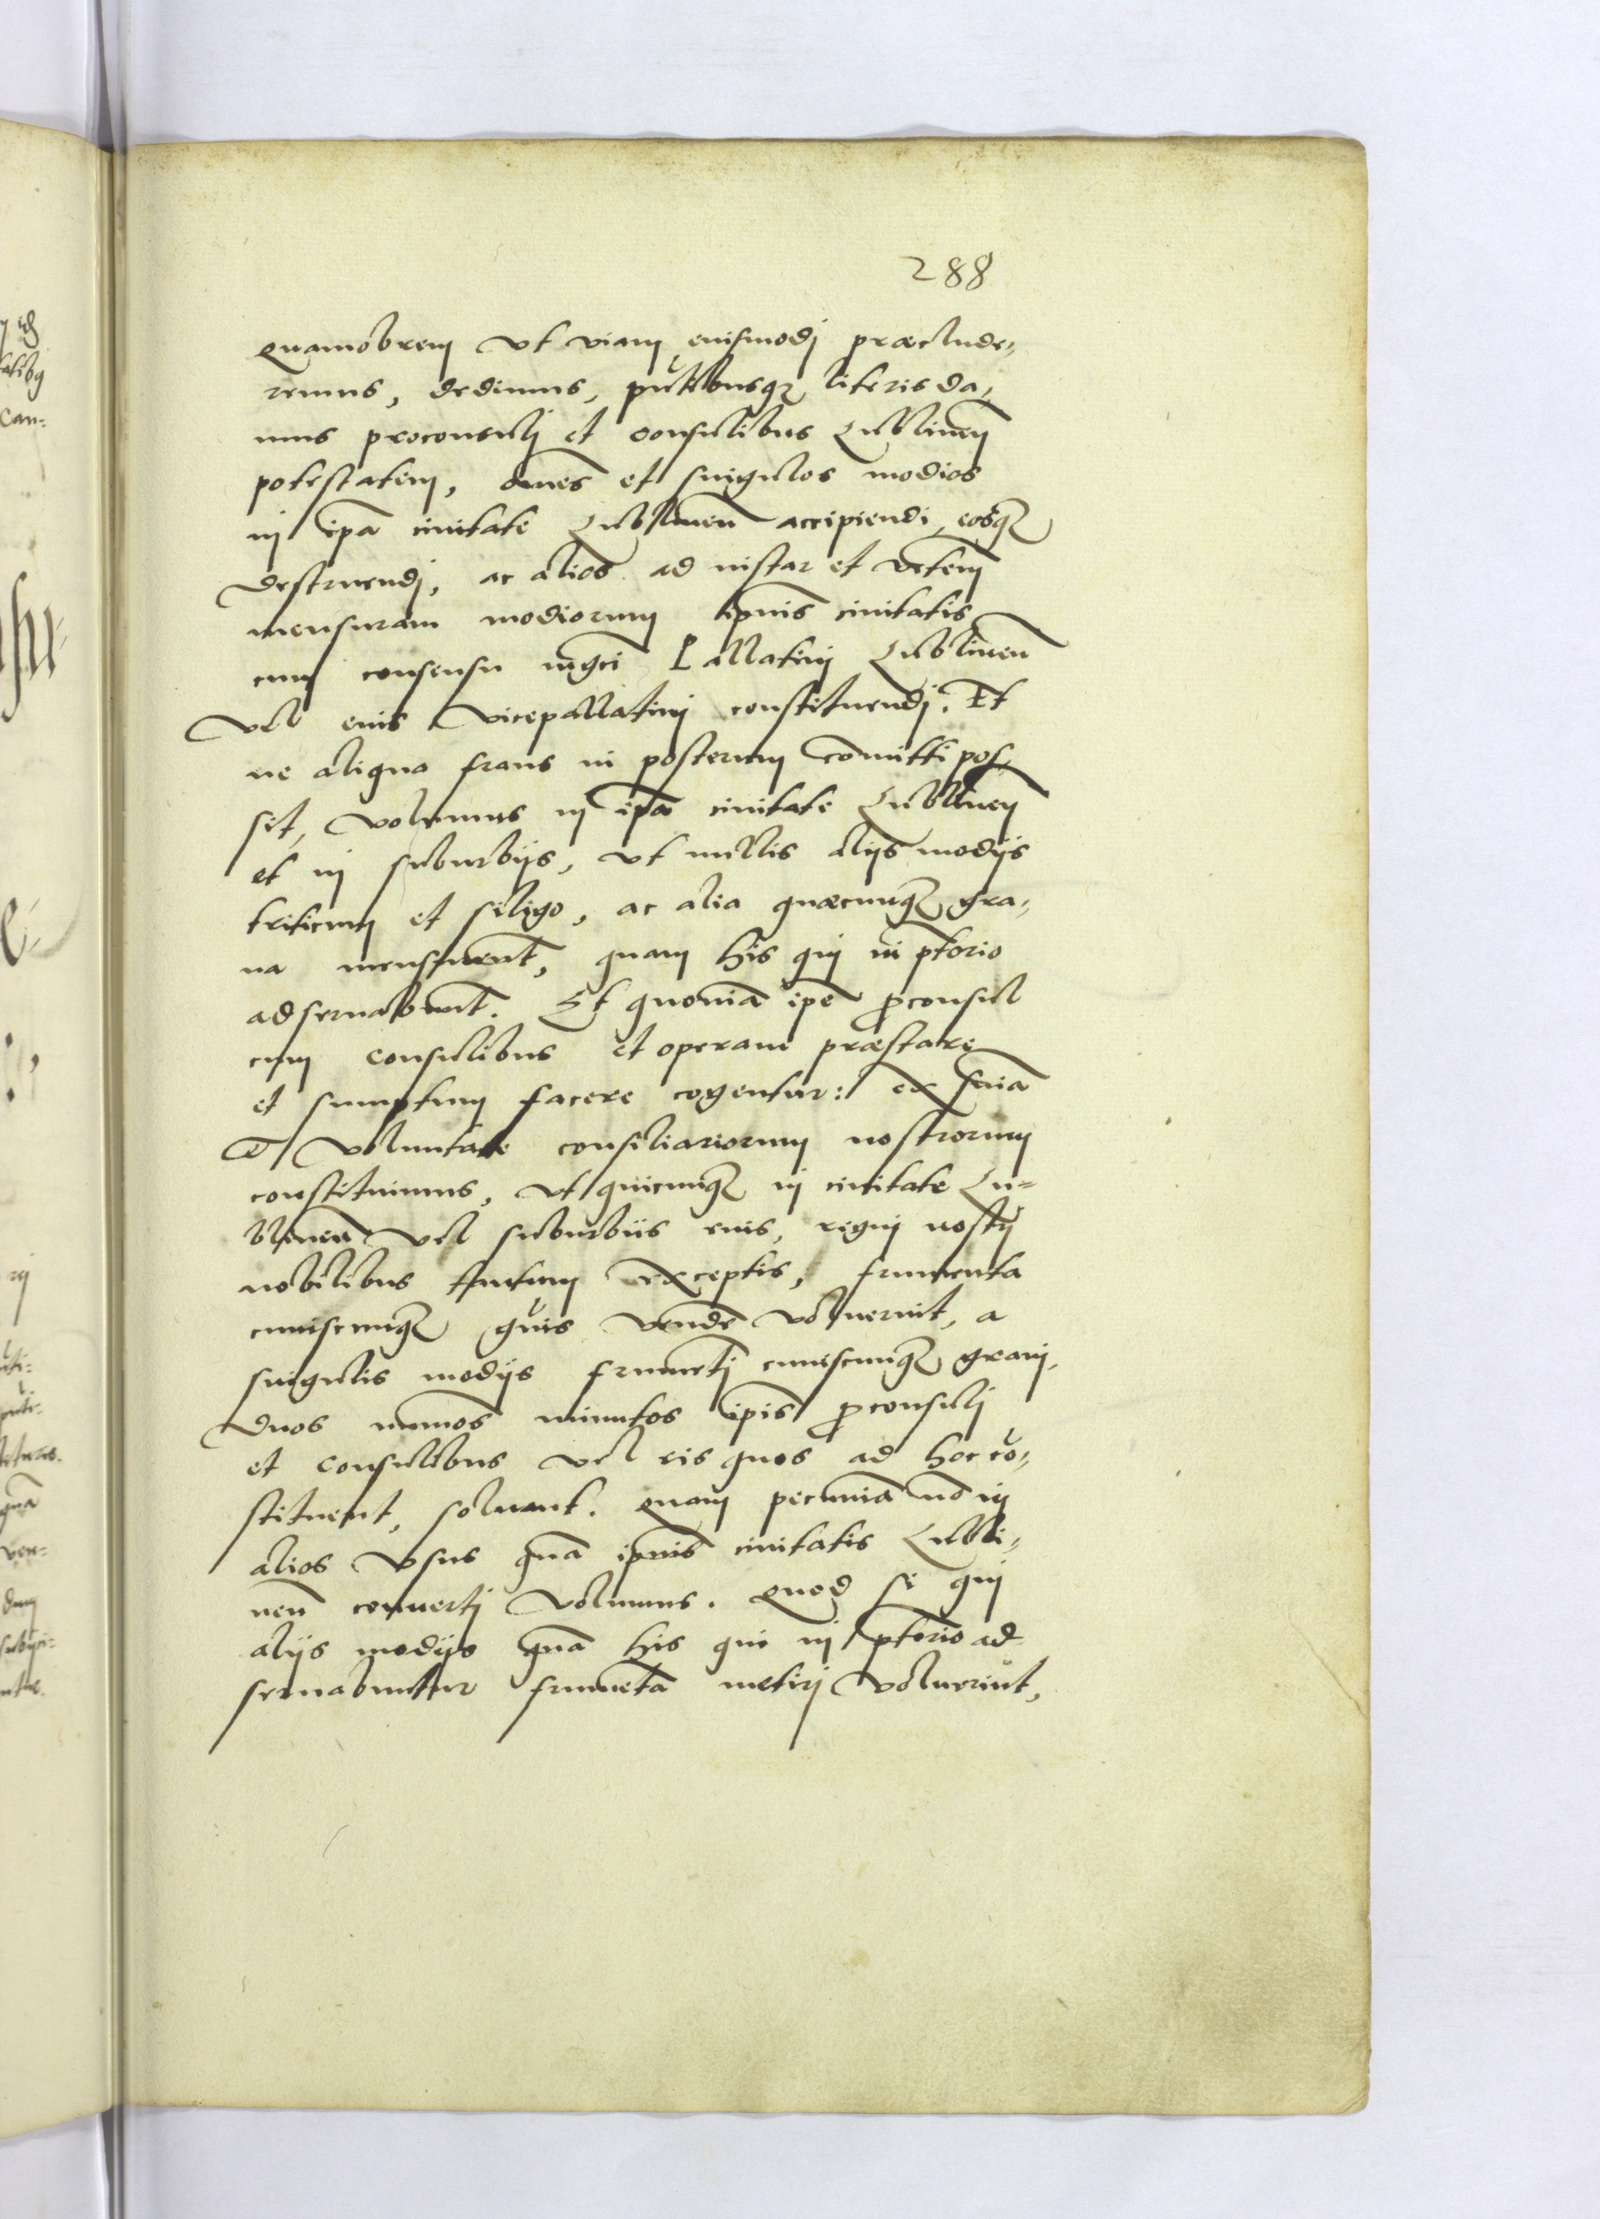 288
Quamobrem vt viam euismodj præclude-
remus, dedimus, pñtibusq3 literis da-
mus proconsulj et consulibus Lublineñ
potestatem, om̃es et singulos modios
in ip̃a ciuitate Lublineñ accipiendi, eosq3
destruendj, ac alios ad instar et vetem̃
mensuram modiorum ip̃ius ciuitatis
cum consensu mg̃ci Pallatinj Lublineñ
vel eius vicepallatinj constituendj. Et
ne aliqua fraus in posterum com̃itti pos-
sit, volumus in ip̃a ciuitate Lublineñ
et in suburbijs, vt nullis alijs modijs
triticum et siligo, ac alia quæcunq3 gra-
na mensurent̃, quam his qui in p̃torio
adseruabunt̃. Et quoniã ip̃e p̱consul
cum consulibus et operam præstare
et sumptum facere cogentur: ex sñia
et voluntate consiliariorum nostrorum
constituimus, vt quicunq3 in ciuitate Lu-
blineñ vel suburbiis eius, regni nostrj
nobilibus tantum exceptis, frumenta
cuiuscunq3 gñis vende͂ voluerint, a
singulis modijs frumẽtj cuiuscunq3 granj,
duos num̃os minutos ip̃is p̱consulj
et consulibus vel eis quos ad hoc cõ-
stituent, soluant. Quam pecuniã nõ in
alios vsus quã ip̃ius ciuitatis Lubli-
neñ conuertj volumus. Quod si qui
alijs modijs quã his qui in p̃torio ad-
seruabuntur frumẽta metirj voluerint,